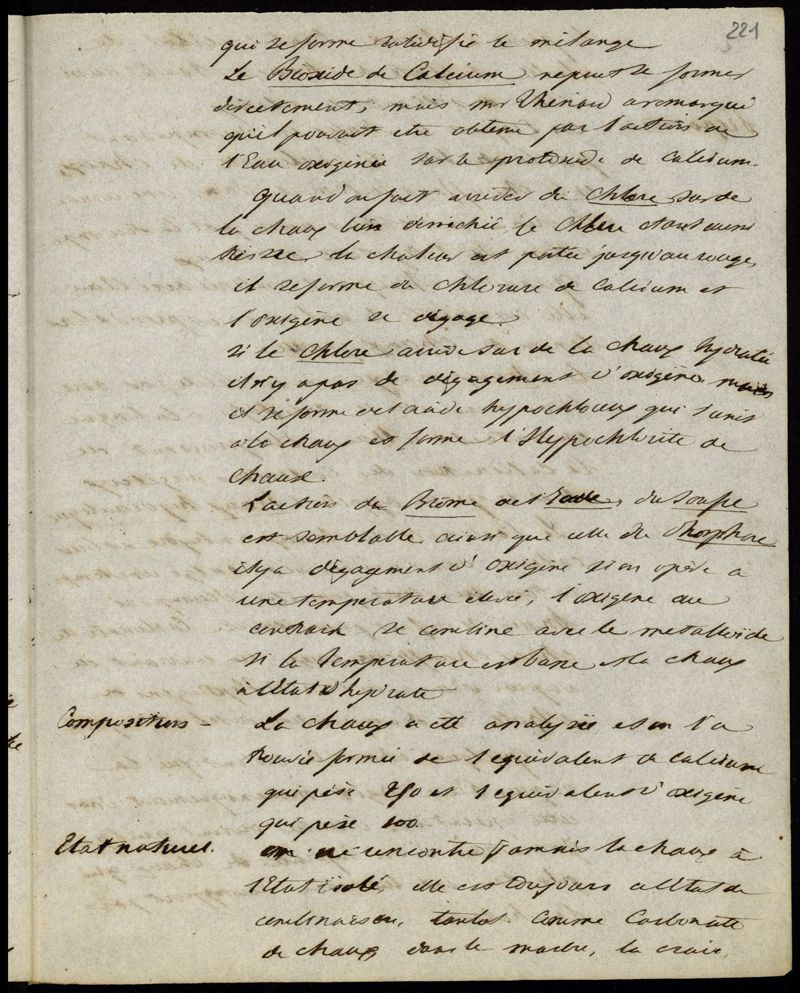 221
qui se forme solidifie le mélange
Le Bioxide de Calcium ne peut se former
directement, mais mr Thénard a remarqué
qu'il pouvait être obtenu par l'action de
l'Eau oxigénée sur le protoxide de Calcium.
Quand on fait arriver du Chlore sur de
la chaux bien desséchée le Chlore étant aussi
sec, la chaleur est portée jusqu'au rouge,
il se forme du Chlorure de Calcium et
l'oxigène se dégage.
Si le Chlore arrive sur de la chaux hydratée
il n'y a pas de dégagement d'oxigène, mais
il se forme de l'acide hypochloreux qui s'unit
à la chaux et forme l'Hypochlorite de
chaux.
L'action du Brome de l'Iode, du Soufre
est semblable ainsi que celle du Phosphore
il y a dégagement d'oxigène si on opère à
une température élevée, l'oxigène au
contraire se combine avec le métalloïde
si la température est basse et la chaux
à l'état d'hydrate
Composition - La chaux a été analysée et on l'a
trouvée formée de 1 équivalent de calcium
qui pèse 250 et 1 équivalent d'oxigène
qui pèse 100.
Etat naturel. on ne rencontre jamais la chaux à
l'Etat isolé, elle est toujours à l'état de
combinaison, tantot comme Carbonate
de chaux dans le marbre, la craie,